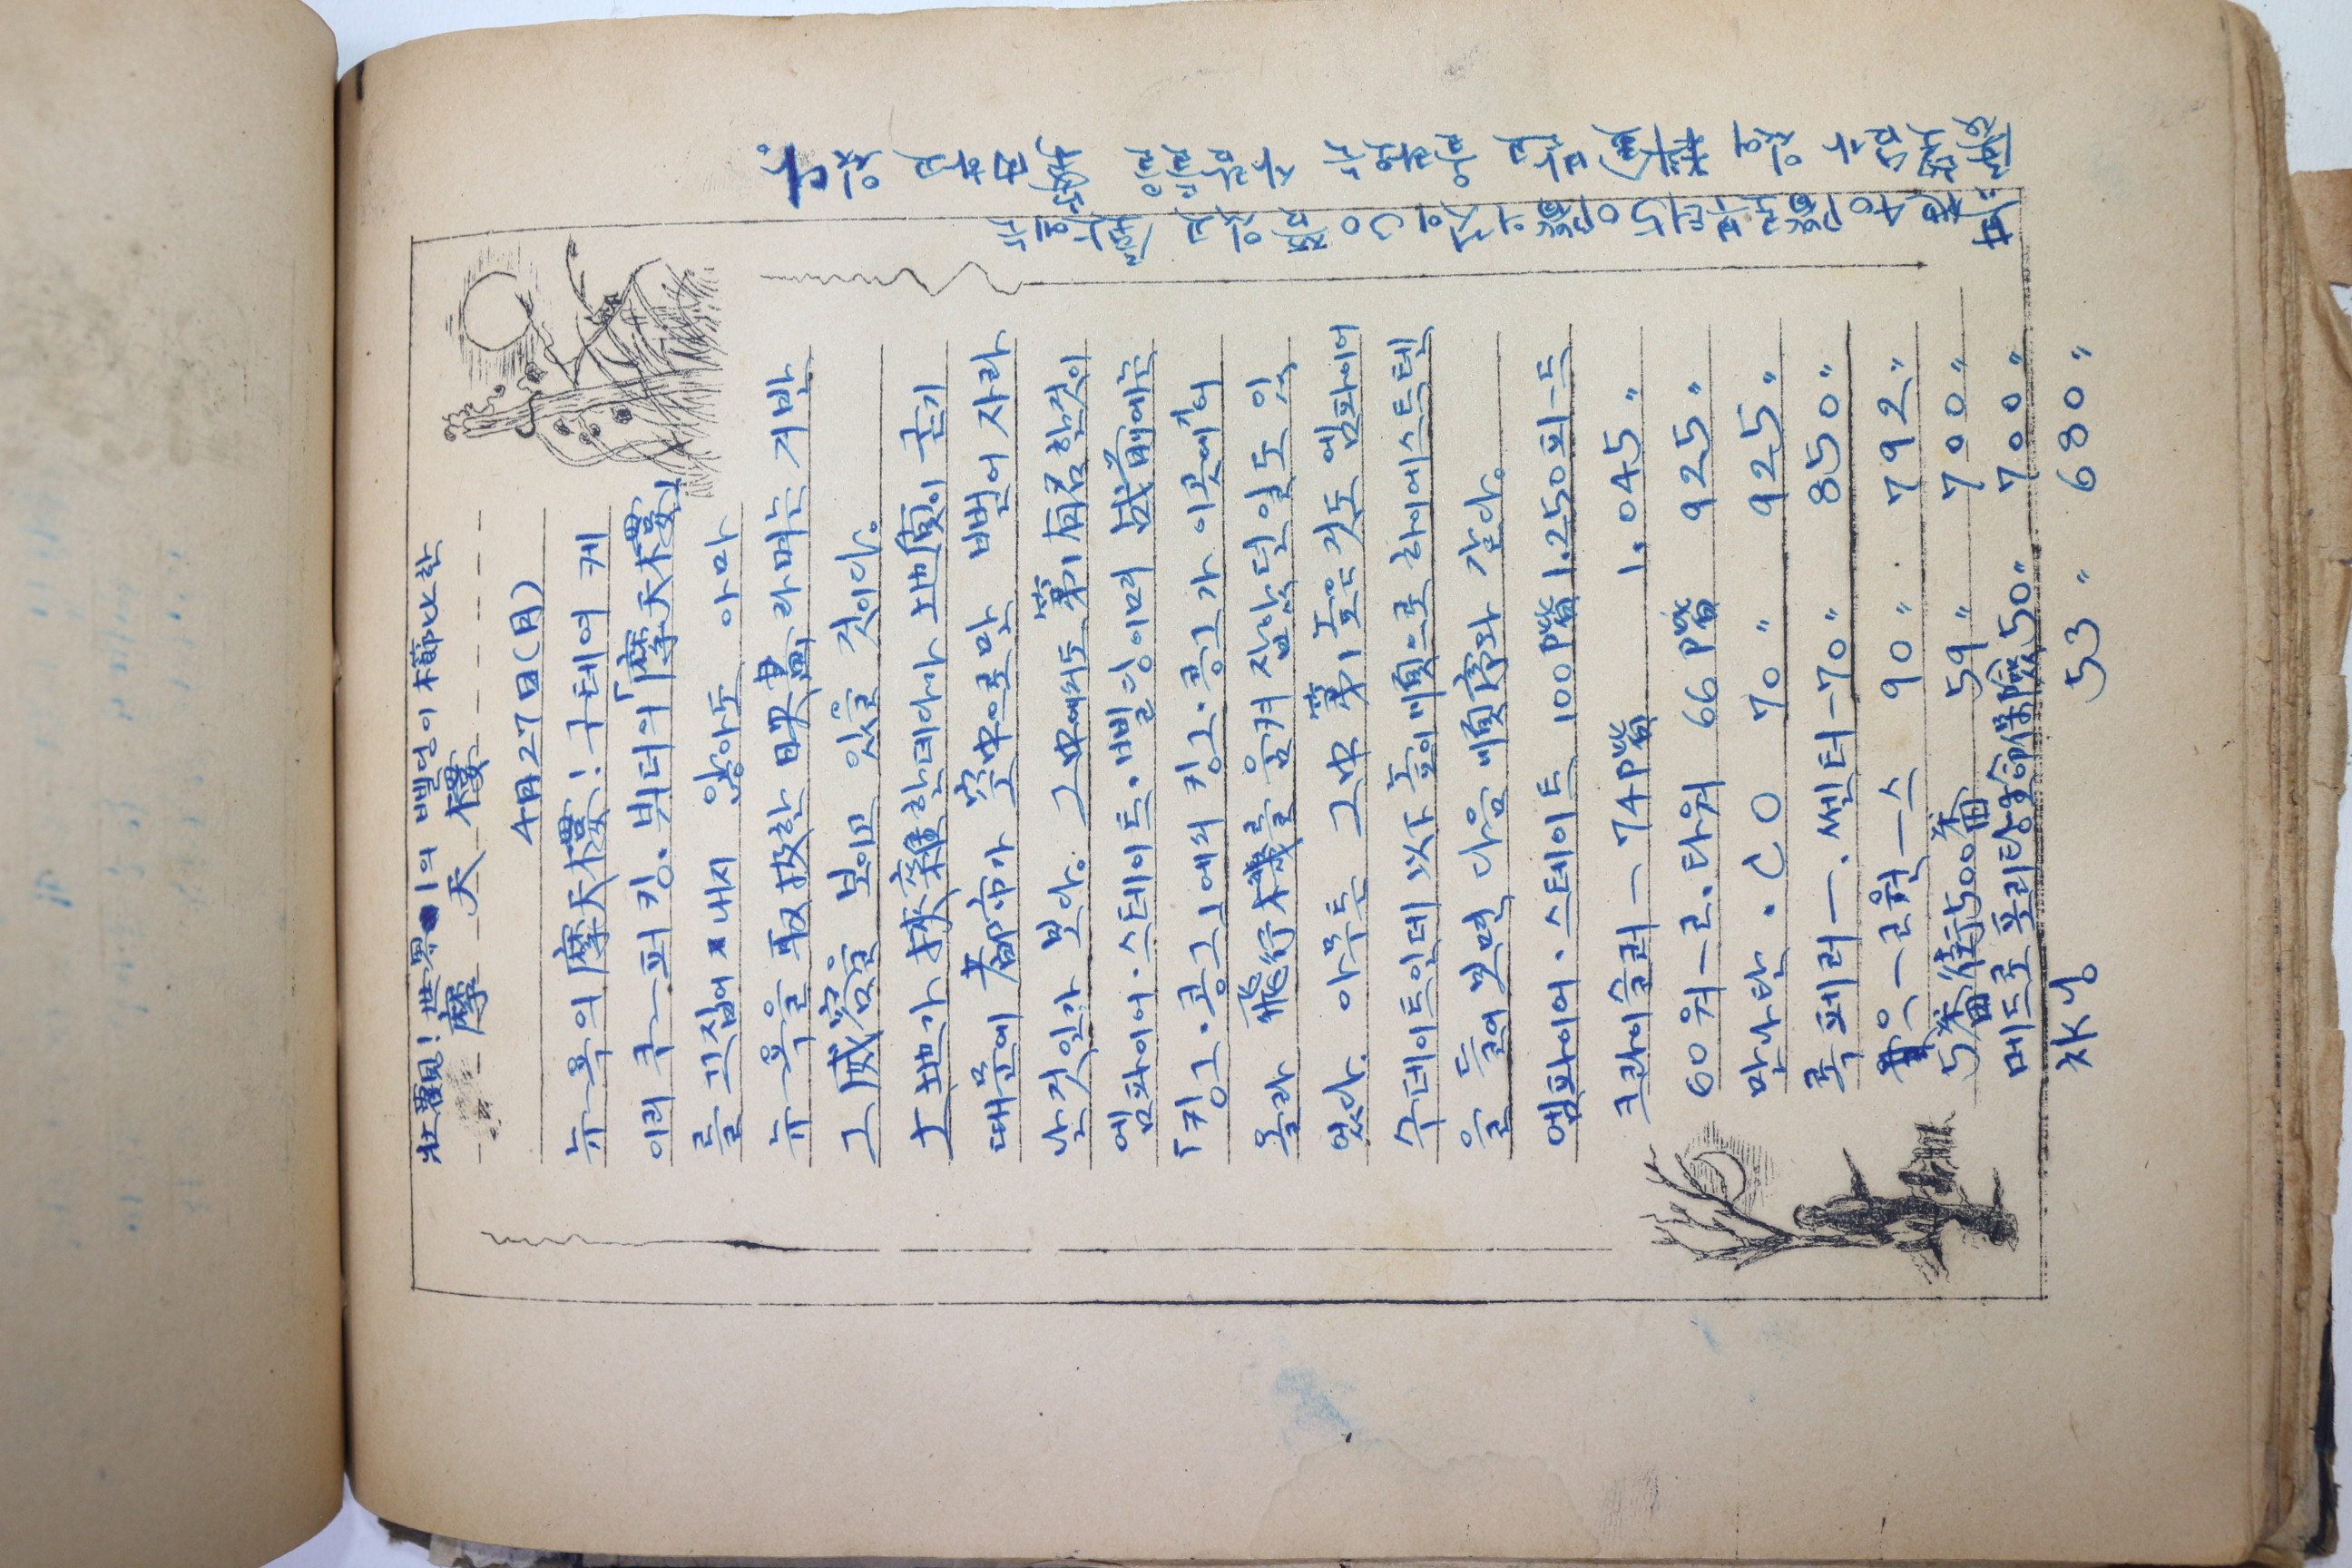 壯觀! 世界1의 삘딩이 櫛比한
摩天樓
4月27日(月)
뉴욕의 摩天樓! 구테여 케
이리 쿠ー퍼 킹. 뷔더의 「摩天樓」
를 끄집어 내지 않아도 아마
뉴욕을 取扱한 映畵라며는 거반
그 威容을 보이고 있을 것이다.
土地가 挾雜한데다가 地質이 굳기
때문에 都市가 空中으로만 뻗어 자라
난것인가 보다. 그中에서도 第1 有名한것이
엠파이어·스테이트·삘딩이며 战前에는
「킹그·콩그」에서 킹그·콩그가 이곳에 기어
올라 飛行機를 움켜 잡았던일도 있
었다. 아무튼 그中 第1 높은것도 엠파이어
수데이트인데 以下 높이 順으로 하이에스트텐
을 들어보면 다음 順序와 같다.
엠파이어·스테이트 100階 1.250피ー트
크라이슬러ー 74階 1.045〃
60워ー르.타워 66階 925〃
만나탄.CO 70〃 925〃
록페러ー.쎈터ー70〃 850〃
욱ー르워ー스 90〃 792〃
5番街500番 59〃 700〃
메트로포리탕生命保險 50〃 700〃
차닝 53〃 680〃
其他 40階로부터 50階의 것이 30쯤 있고 屋上에는
展望台가 있어 料金을 받고 올라오는 사람들을 案內하고 있다.